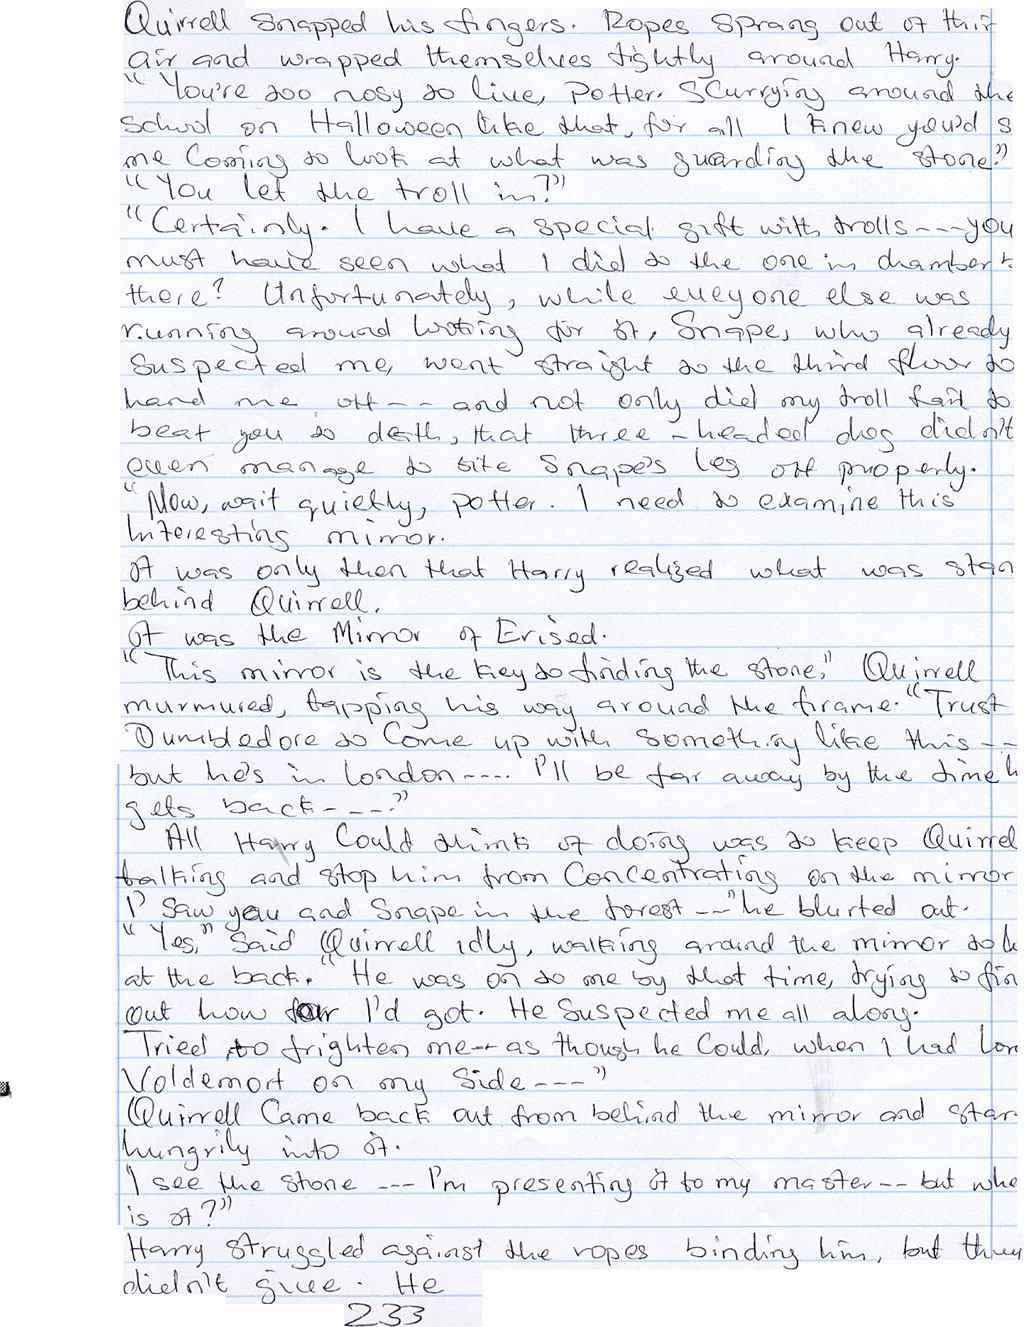 Quirrell snapped his fingers. Ropes sprang out of thin
air and wrapped themselves tightly around Harry.
"You're too nosy to live, Potter. Scurrying around the
school on Halloween like that, for all I knew you'd s
me coming to look at what was guarding the stone."
"You let the troll in?"
"Certainly. I have a special gift with trolls ---you
must have seen what I did to the one in chamber
there? Unfortunately, while eveyone else was
running around looking for it, Snape, who already
suspected me, went straight to the third floor to
hand me off -- and not only did my troll fail to
beat you to death, that three-headed dog didn't
even manage to bite Snape's leg off properly.
"Now, wait quietly, potter. I need to examine this
interesting mirror.
It was only then that Harry realized what was stan
behind Quirrell.
It was the Mirror of Erised.
"This mirror is the key to finding the stone," Quirrell
murmured, tapping his way around the frame. "Trust
Dumbledore to come up with something like this --
but he's in London---- I'll be far away by the time h
gets back----."
All Harry could think of doing was to keep Quirrel
talking and stop him from concentrating on the mirror
I" saw you and Snape in the forest --" he blurted out.
"Yes," said Quirrell idly, walking around the mirror to l
at the back. "He was on to me by that time, trying to fin
out how far I'd got. He suspected me all along.
Tried to frighten me-- as though he could, when I had Lor
Voldemort on my side---"
Quirrell came back out from behind the mirror and star
hungrily into it.
I see the stone --- I'm presenting it to my master-- but whe
is it?"
Harry struggled against the ropes binding him, but they
didn't give. He
233